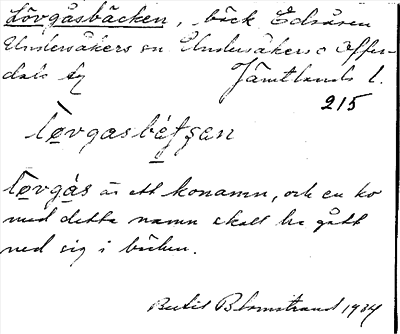 Lövgåsbäcken, bäck Edsåsen
Undersåkers sn Undersåkers o Offer-
dals tg Jämtlands l.
215
Løvgasbétsen
Løvgàs är ett konamn, och en ko
med detta namn skall ha gått
ned sig i bäcken.
Bertil Blomstrand 1934